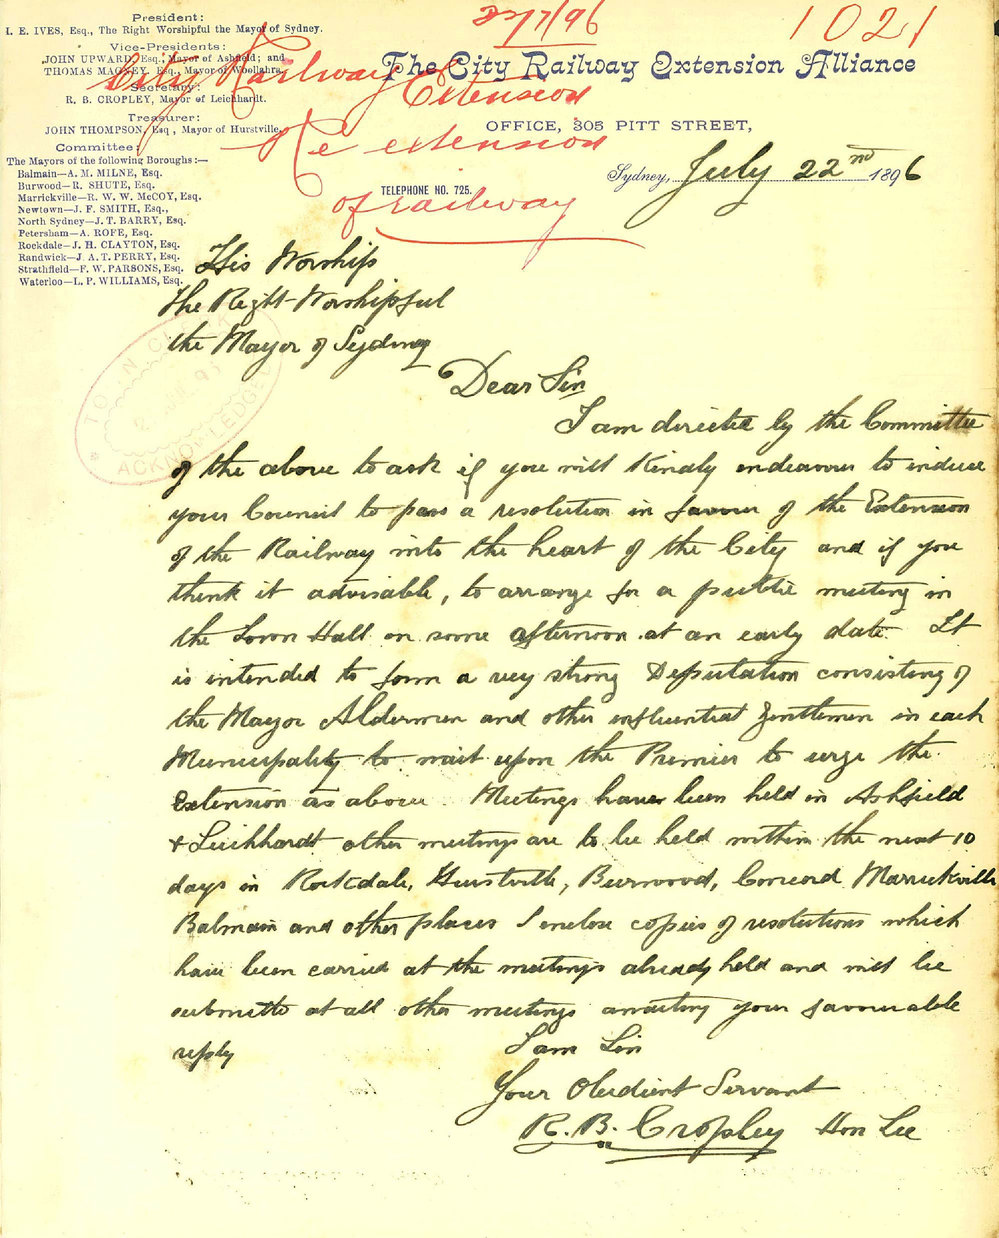 President:
I. E. IVES, Esq., The Right Worshipful the Mayor of Sydney.
Vice-Presidents:
JOHN UPWARD, Esq., Mayor of Ashfield; and
THOMAS MAGNEY, Esq., Mayor of Woollahra.
Secretary:
R. B. CROPLEY, Mayor of Leichhardt.
Treasurer:
JOHN THOMPSON, Esq., Mayor of Hurstville.
Committee:
The Mayors of the following Boroughs:—
Balmain—A. M. MILNE, Esq.
Burwood—R. SHUTE, Esq.
Marrickville—R. W. W. McCOY, Esq.
Newtown—J. F. SMITH, Esq.,
North Sydney—J. T. BARRY, Esq.
Petersham—A. ROFE, Esq.
Rockdale—J. H. CLAYTON, Esq.
Randwick—J. A. T. PERRY, Esq.
Strathfield—F. W. PARSONS, Esq.
Waterloo—L. P. WILLIAMS, Esq.
22/7/96
1021
City Railway
Extension
Re extension
of railway
The City Railway Extension Alliance
OFFICE, 305 PITT STREET,
TELEPHONE NO. 725.
Sydney, July 22nd 1896
TOWN CLERK
ACKNOWLEDGED
His Worship
The Right Worshipful
the Mayor of Sydney
Dear Sir
I am directed by the Committee
of the above to ask if you will kindly endeavour to induce
your Council to pass a resolution in favour of the Extension
of the Railway into the heart of the City and if you
think it advisable, to arrange for a public meeting in
the Town Hall on some afternoon at an early date. It
is intended to form a very strong Deputation consisting of
the Mayor Aldermen and other influential gentlemen in each
Municipality to wait upon the Premier to urge the
Extension as above. Meetings have been held in Ashfield
& Leichhardt other meetings are to be held within the next 10
days in Rockdale, Hurstville, Burwood, Concord, Marrickville
Balmain and other places I enclose copies of resolutions which
have been carried at the meetings already held and will be
submitted at all other meetings awaiting your favourable
reply
I am Sir
Your Obedient Servant
R. B. Cropley Hon Sec